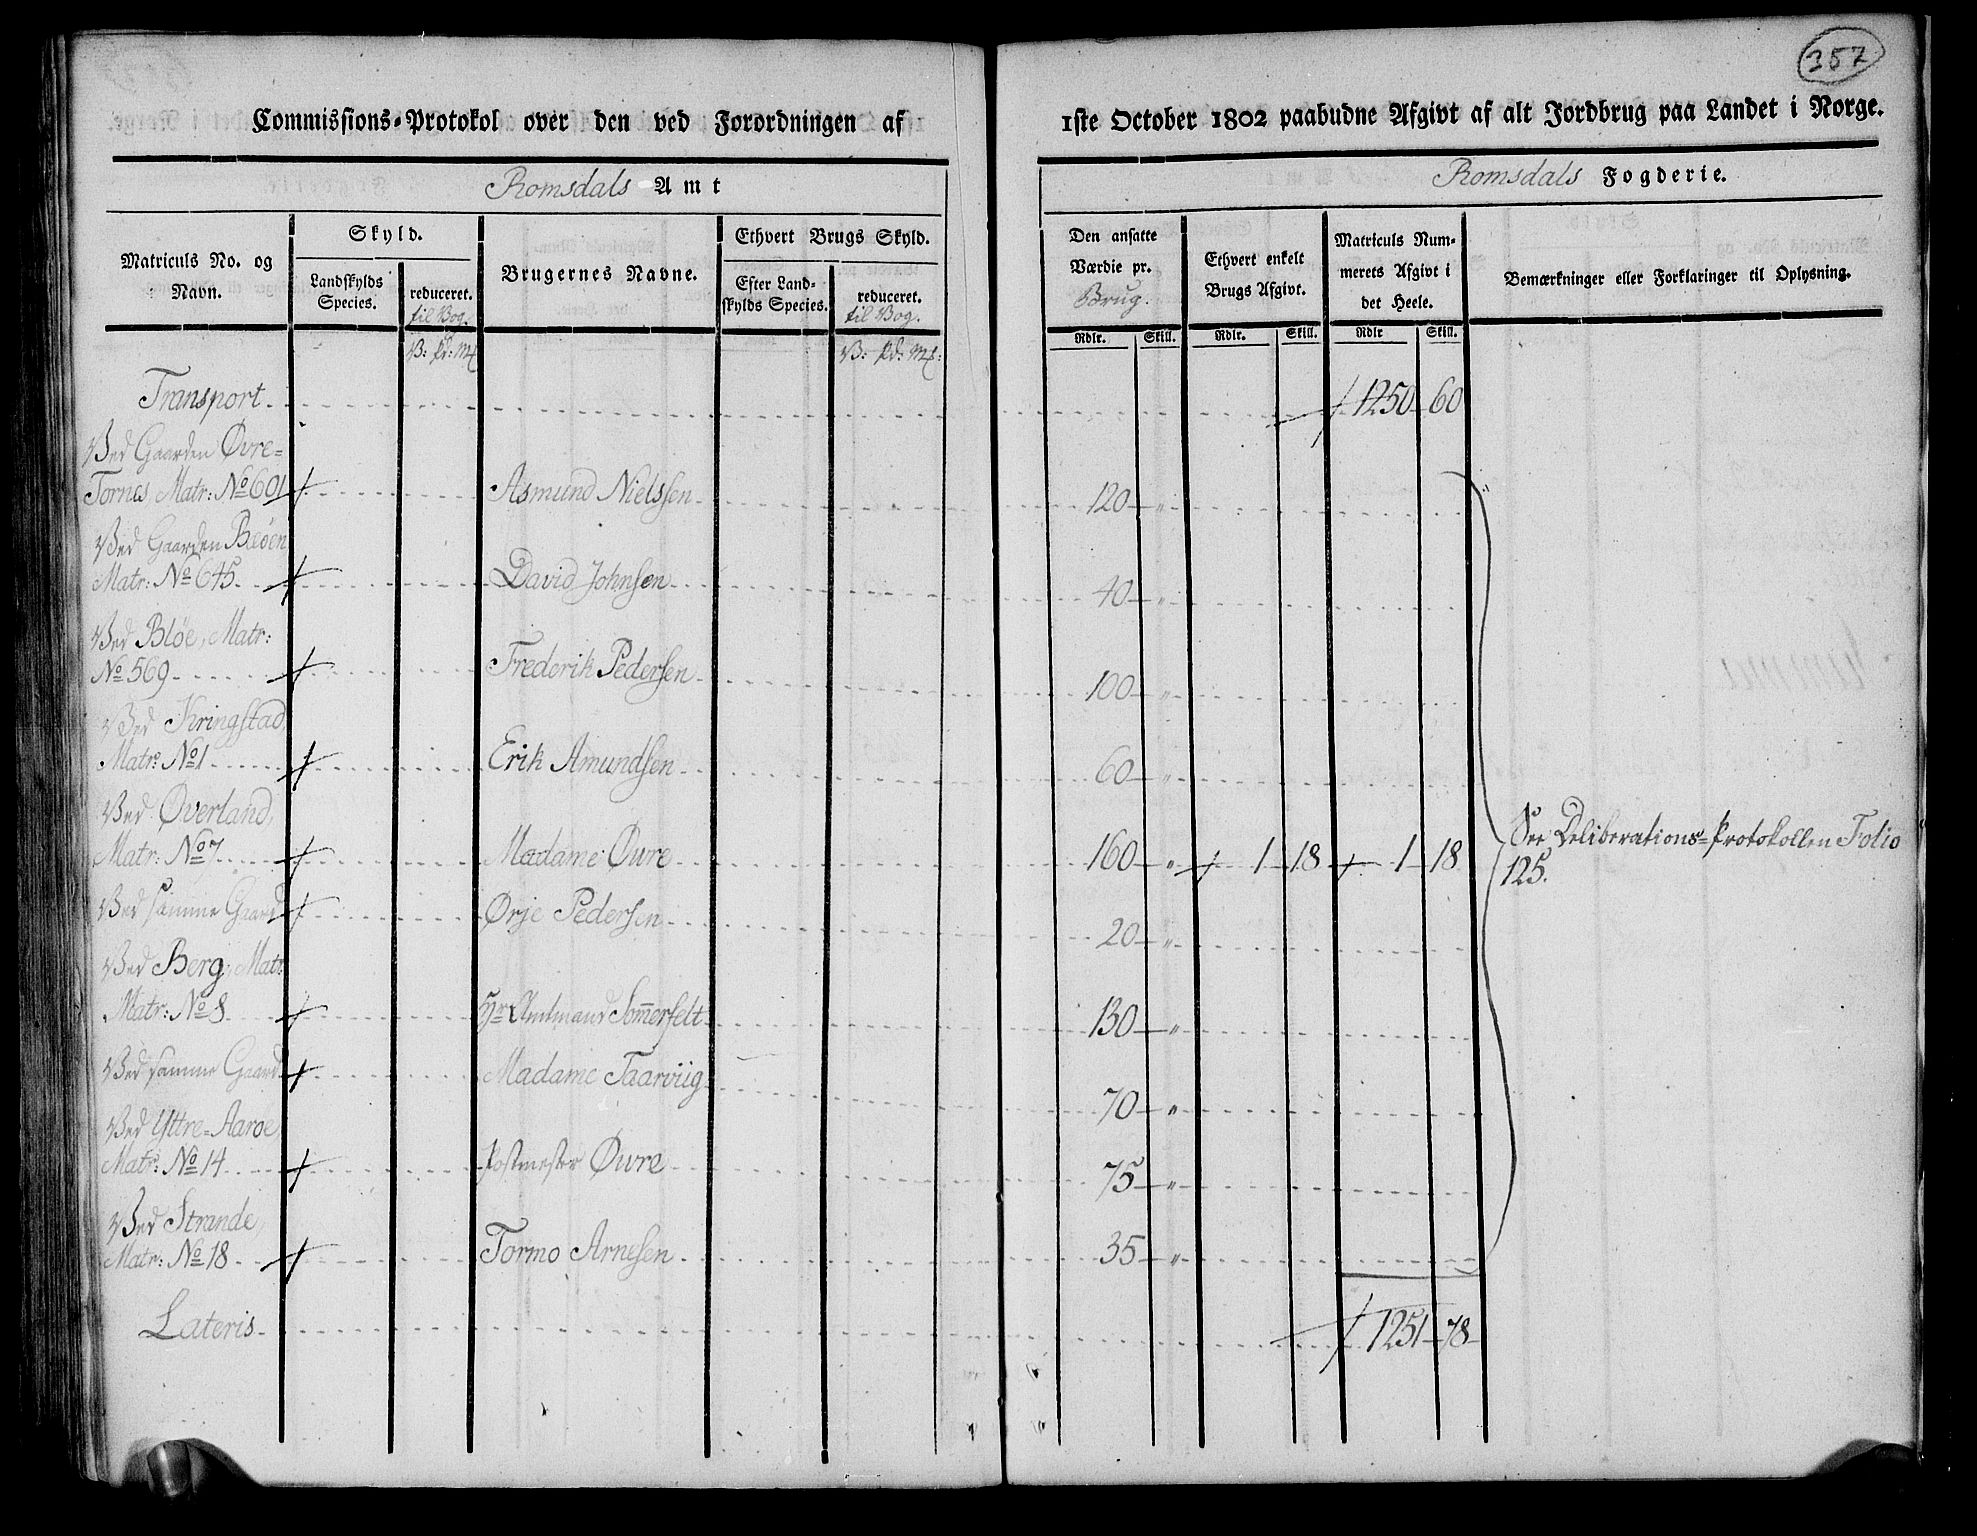 357
Commissions-Protokol over den ved Forordningen af 1ste October 1802 paabudne Afgivt af alt Jordbrug paa Landet i Norge.
Romsdals Amt
Romsdals Fogderie.
Matriculs No. og Navn.
Skyld.
Landskylds Species.
reduceret. til Bog.
Brugernes Navne.
Ethvert Brugs Skyld.
Efter Landskylds Species.
reduceret. til Bog.
Den ansatte Værdie pr. Brug.
Ethvert enkelt Brugs Afgivt.
Matriculs Nummerets Afgivt i det Heele.
Bemærkninger eller Forklaringer til Oplysning.
V: pd: Mk
V: pd: Mk:
Rdlr. Skill. Rdlr. Skill. Rdlr Skill.
Transport 1250 60
Ved Gaarden Øvre-
Tornes Matr: No 601 Asmund Nielssen 120 "
Ved Gaarden Bløen
Matr: No 645 David Johnsen 40 "
Ved Bløe, Matr:
No 569 Frederik Pedersen 100 "
Ved Kringstad,
Matr: No 1 Erik Amundsen 60 "
Ved Øverland,
Matr: No 7 Madame Øwre 160 " 1 18 1 18
See Deliberations-Protokollen Folio
125.
Ved samme Gaard Ørje Pedersen 20 "
Ved Berg, Matr:
Matr: No 8 Hr Amtmand Sommerfelt 130 "
Ved samme Gaard Madame Taarviig 70 "
Ved Yttre-Aaroe,
Matr: No 14 Postmester Øwre 75 "
Ved Strande,
Matr: No 18 Tormo Arnesen 35 "
Lateris 1251 78